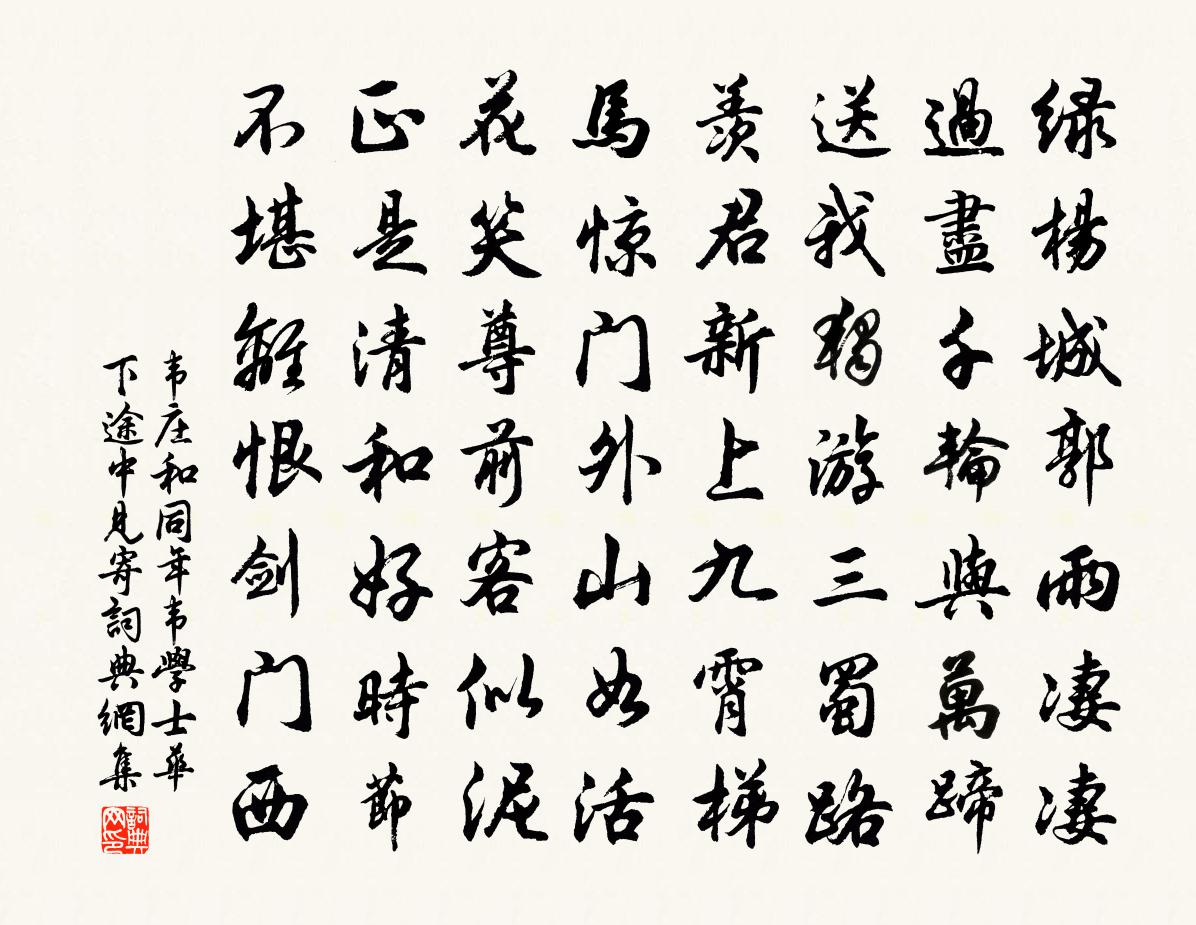 绿楊城郭雨凄凄
過盡千輪與萬蹄
送我獨游三蜀路
羨君新上九霄梯
馬惊门外山如活
花笑尊前客似泥
正是清和好時節
不堪離恨剑门西
韦庄和同年韦學士華
下途中見寄詞典網集
詞典
网印